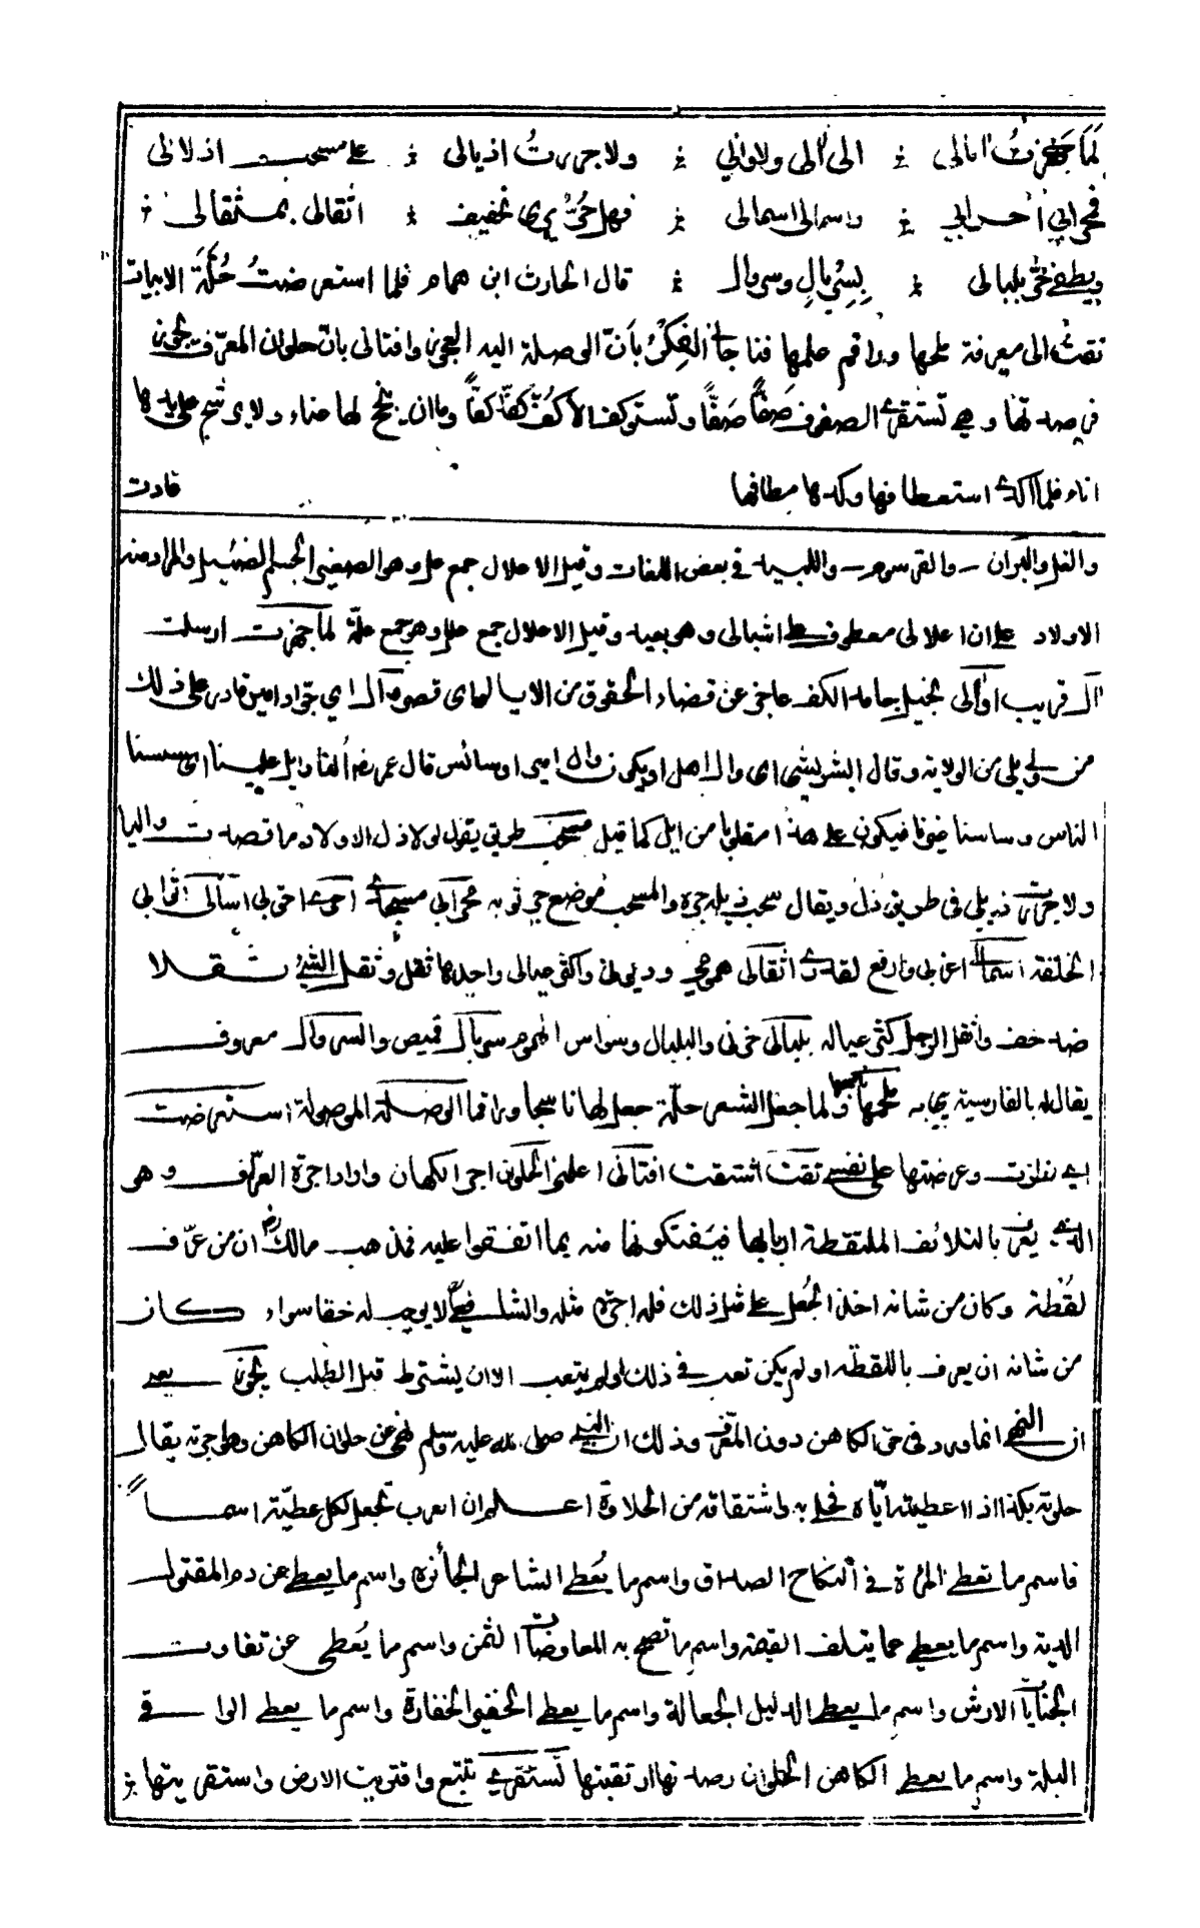 لَمَا جَهَّزتُ امالي ؞ الى ألى ولا والي ؞ ولا جررتُ اذيالي ؞ على مسحب اذلالي
فمحرابي أحرابي ؞ واسمالى اسمالى ؞ فهل حُرٌّ يرى تخفيف ؞ اثقالى بمثقالى ؞
ويطفى حرّ بلبالى ؞ بِسِربالٍ وسروال ؞ قال الحارث ابن همام فلما استعرضتُ حُلَّةَ الابيات
تقتُ الى معرفة ملحمها وراقم علمها فناجانى الفِكرُ بأنّ الوصلة اليه العجوز وافتانى بانّ حلوان المعرّف يجوز
فرصدتها وهي تستقرى الصفوف صَفًّا صَفًّا وتستوكف الأكُفّ كفًّا كفًّا وما ان ينجح لها عناء ولا يرشح على يدها
اناء فلما اكدى استعطافها وكدها مطافها
قادت
والغل والبرآن والقرسوم واللبيد فى بعض اللغات وقيل الاعلال جمع عل وهو الصغير الجسم الضئيل والمراد منه
الاولاد على ان اعلالى معطوف على اشبالى وهو بعيد وقيل الاعلال جمع علل وهو جمع علّة لما جهزت ارسلت
آل قريب اوآلى بخيل جامد الكف عاجز عن قضاء الحقوق من الايالـ اى قصر وال اي جوّاد امير قادر على ذلك
من ولى يلى من الولاية وقال الشريشي اى وال اهل او يكون وال امير او سائس قال عمر رضه ألنا وايل علينا اى سسنا
الناس وساسنا غيرنا فيكون على هذا مقلوبا من ايل كما قيل مسحب طريق يقول لولا ذل الاولاد ما قصدت واليا
ولا جررت ذيلى فى طريق ذل ويقال سحب ذيله جره والمسحب موضع جر ثوبه محرابى مسجدى احرى احق بى اسمالى اثوابى
الخلقة اسمالى اعز لى وارفع لقدرى اثقالى همومى وديونى وكثرة عيالى واحدها ثقل وثقل الشئ ثقلا
ضد خف واثقل الرجل كثر عياله بلبالى حزنى والبلبال وسواس الهموم سربال قميص والسروال معروف
يقال له بالفارسية پيجامه ملحمها ناسجها ولما جعل الشعر حلّة جعل لها ناسجا وراقما الوصلة الموصلة استعرضت
اى نظرت وعرضتها على نفسى تقت اشتقت افتانى اعلمنى الحلوان اجر الكهان وارادا جرة العرّاف وهو
الذي يعرف بالتلائف الملتقطة اربابها فيفتكونها منه بما اتفقوا عليه فمذهب مالك رضه ان من عرّف
لقُطة وكان من شانه اخذ الجُعل على مثل ذلك فله اجرة مثله والشافعى لا يوجب له حقا سواء كان
من شانه ان يعرف باللقطة او لم يكن تعب فى ذلك او لم يتعب الا ان يشترط قبل الطلب يجوز يعد
ان النهى انما ورد فى حق الكاهن دون المعرّف وذلك ان النبى صلى الله عليه وسلم نهى عن حلوان الكاهن وهو اجرته يقال
حلوته بكذا اذا اعطيته ايّاه فحلى به واشتقاقه من الحلاوة اعلم ان العرب تجعل لكل عطيّة اسماً
فاسم ما تعطى المرأة فى النكاح الصداق واسم ما يُعطى الشاعر الجائزه واسم ما يعطى من دم المقتول
الدية واسم ما يعطى عما يتلف القيمة واسم ما تصح به المعاوضات الثمن واسم ما يُعطى عن تفاوت
الجنايات الارش واسم ما يعطى الدليل الجعالة واسم ما يعطى الخفير الخفارة واسم ما يعطى الراقى
البلة واسم ما يعطى الكاهن الحلوان رصدتها ارتقبتها تستقرى تتبع واقتريت الارض واستقريتها